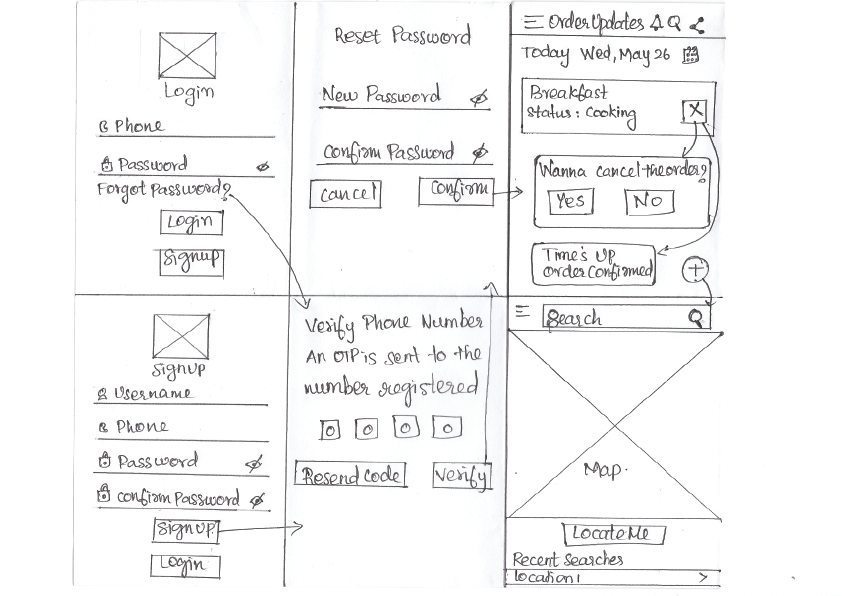 Login
Phone
Password
Forgot Password?
Login
Signup
Reset Password
New Password
Confirm Password
Cancel
Confirm
Order Updates
Today Wed, May 26
Breakfast
Status : Cooking
X
Wanna cancel the order?
Yes
No
Time's UP
Order Confirmed
+
SignUP
Username
Phone
Password
Confirm Password
SignUP
Login
Verify Phone Number
An OTP is sent to the
number registered
Resend Code
Verify
Search
Map.
Locate Me
Recent Searches
Location 1 >